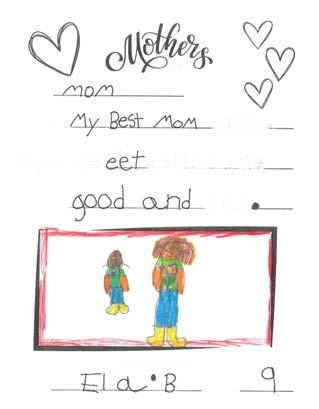 Mothers
mom
My Best Mom
eet
good and .
Ela•B 9